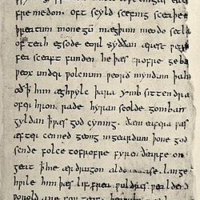 fre medon. oft scyld scefing sceaþe
þreatum monegū mægþum meodo setla
of teah egsode eorl syððan ærest wear
fea sceaft funden he þæs frofre geba
weox under wolcnum weorð myndum þah
oð þ him æghwylc þara ymb sittendra
ofer hron rade hyran scolde gomban
gyldan þ wæs god cyning. ðæm eafera wæs
æfter cenned geong ingeardum þone god
sende folce tofrofre fyren ðearfe on
geat þ hie ær drugon aldor ase. lange
hwile him þæs lif frea wuldres wealdend